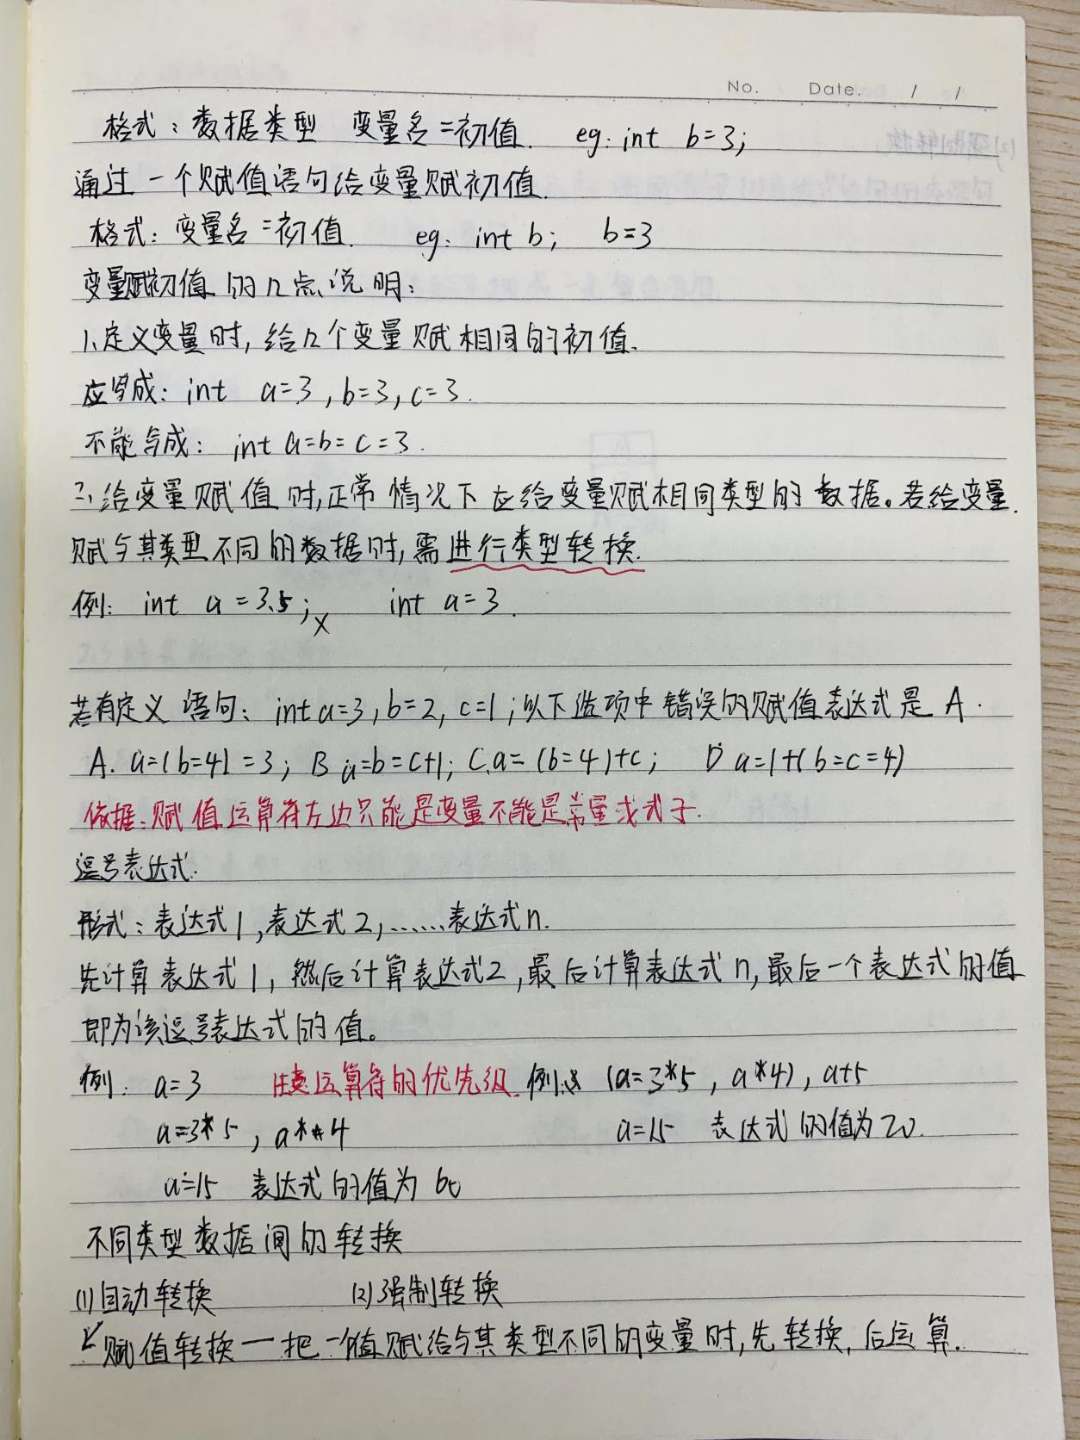 No.    Date.    /    /
格式：数据类型 变量名=初值. eg: int b=3;
通过一个赋值语句给变量赋初值.
格式：变量名=初值. eg: int b; b=3
变量赋初值的几点说明：
1、定义变量时，给几个变量赋相同的初值.
应写成：int a=3, b=3, c=3.
不能写成：int a=b=c=3.
二、给变量赋值时,正常情况下应给变量赋相同类型的数据。若给变量.
赋与其类型不同的数据时,需进行类型转换.
例: int a=3.5; × int a=3.
若有定义语句：int a=3, b=2, c=1;以下选项中错误的赋值表达式是 A.
A. a=(b=4)=3; B a=b=c+1; C.a=(b=4)+c; D a=1+(b=c=4)
依据:赋值运算符左边只能是变量不能是常量或式子.
逗号表达式.
形式：表达式1,表达式2,……表达式n.
先计算表达式1，然后计算表达式2,最后计算表达式n,最后一个表达式的值
即为该逗号表达式的值。
例: a=3 注意运算符的优先级. 例: (a=3*5, a*4), a+5
a=3*5, a*4 a=15 表达式的值为20.
a=15 表达式的值为60
不同类型数据间的转换
(1)自动转换 (2)强制转换
↙赋值转换—把一个值赋给与其类型不同的变量时,先转换,后运算.